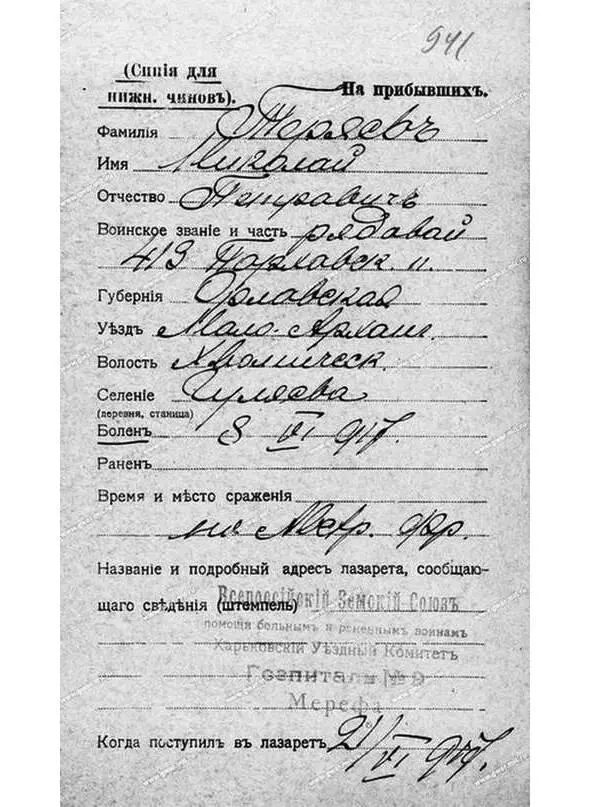 941
(Синія для
нижн. чиновъ).
На прибывшихъ.
Фамилія Теряевъ
Имя Миколай
Отчество Петравичъ
Воинское званіе и часть рядавой
419 п.
Губернія Орлавская
Уѣздъ Мало-Арханг.
Волость
Селеніе Гуляева
(деревня, станица)
Боленъ 8 VI 917.
Раненъ
Время и мѣсто сраженія
на
Названіе и подробный адресъ лазарета, сообщаю-
щаго свѣдѣнія (штемпель) Всероссійскій Земскій Союзъ
помощи больнымъ и раненнымъ воинамъ
Харьковскій Уѣздный Комитетъ
Госпиталь № 9
Мерефа
Когда поступилъ въ лазаретъ 21/VI 917.